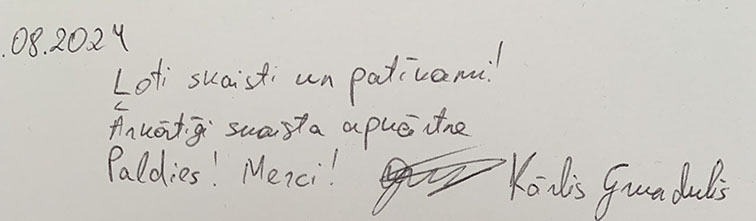 .08.2024
Ļoti skaisti un patīkami!
Ārkārtīgi skaista apkārtne
Paldies! Merci! Kārlis